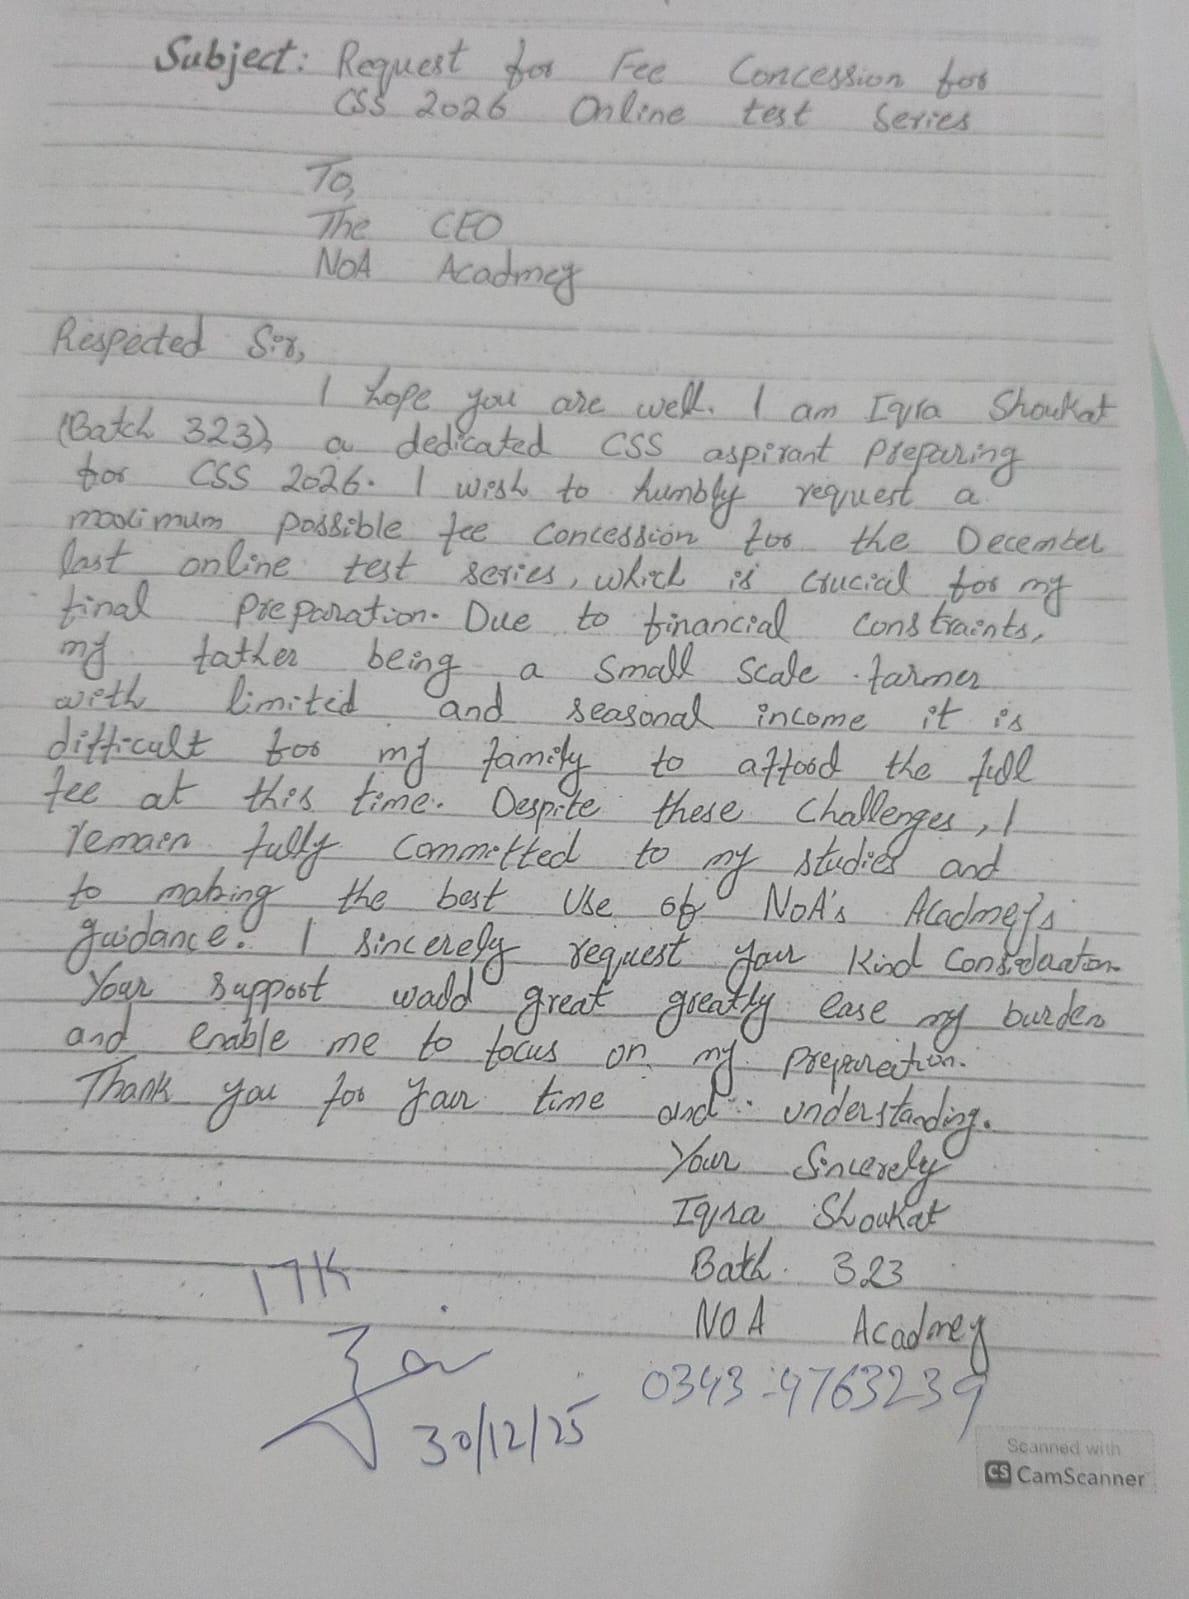 Subject: Request for Fee Concession for
CSS 2026 Online test Series
To,
The CEO
NOA Acadmey
Respected Sir,
I hope you are well. I am Iqra Shoukat
(Batch 323), a dedicated CSS aspirant preparing
for CSS 2026. I wish to humbly request a
maximum possible fee concession for the December
last online test series, which is crucial for my
final preparation. Due to financial constraints,
my father being a small scale farmer
with limited and seasonal income it is
difficult for my family to afford the full
fee at this time. Despite these challenges, I
remain fully committed to my studies and
to making the best use of NOA's Acadmey's
guidance. I sincerely request your kind consideration
Your support would great greatly ease my burden
and enable me to focus on my preparation.
Thank you for your time and understanding.
Your Sincerely
Iqra Shoukat
Bath 323
NOA Acadmey
17K
30/12/25
0343-4763239
Scanned with
CS CamScanner